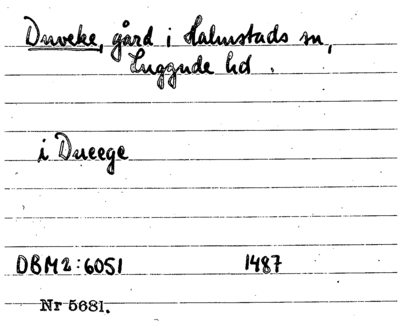 Duveke, gård i Halmstads sn,
Luggude hd.
i Dueege
DBM2:6051 1487
Nr 5681.